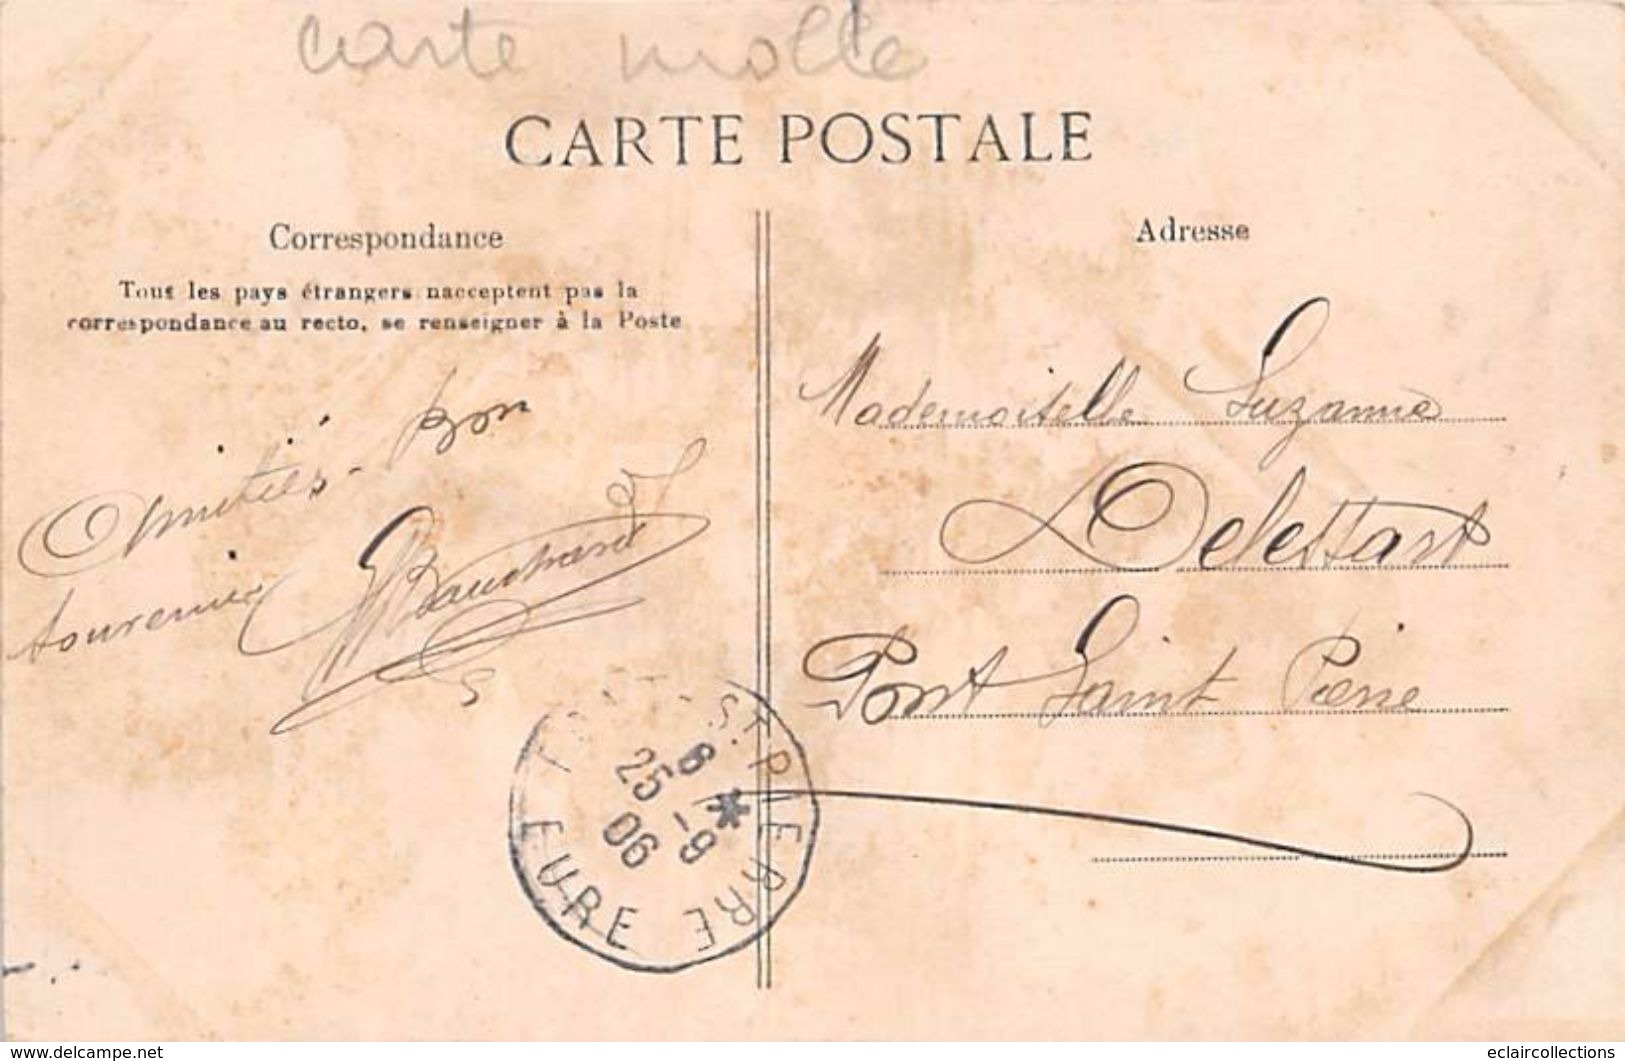 carte molle
CARTE POSTALE
Correspondance
Tous les pays étrangers nacceptent pas la
correspondance au recto, se renseigner à la Poste
Amitiés - Bon
souvenir
Bauchard
Adresse
Mademoiselle Suzanne
Delettart
Pont Saint Pierre
PONT-ST-PIERRE
6
25 -9
06
EURE
www.delcampe.net
eclaircollections